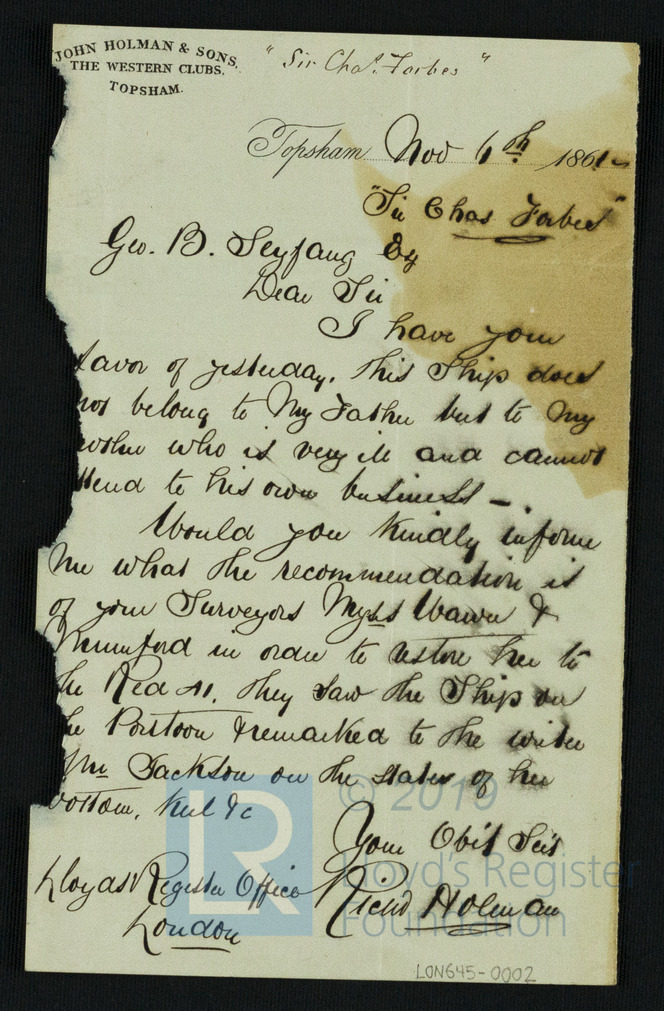 JOHN HOLMAN & SONS,
THE WESTERN CLUBS.
TOPSHAM.
"Sir Chas. Forbes"
Topsham Nov 6th 1861
"Sir Chas Forbes"
Geo. B. Seyfang Esq
Dear Sir
I have your
favor of yesterday, this Ship does
not belong to My Father but to My
who is very ill and cannot
attend to his own business -
Would you kindly inform
Me what the recommendation is
of your Surveyors &
in order to restore her to
the Red A1. They saw the Ship on
the Pontoon & remarked to the writer
Mr Jackson on the state of her
bottom, Keel &c
Your Obt Sert
Richd Holman
Lloyds Register Office
London
LR
© 2019
Lloyd's Register
Foundation
LON645-0002